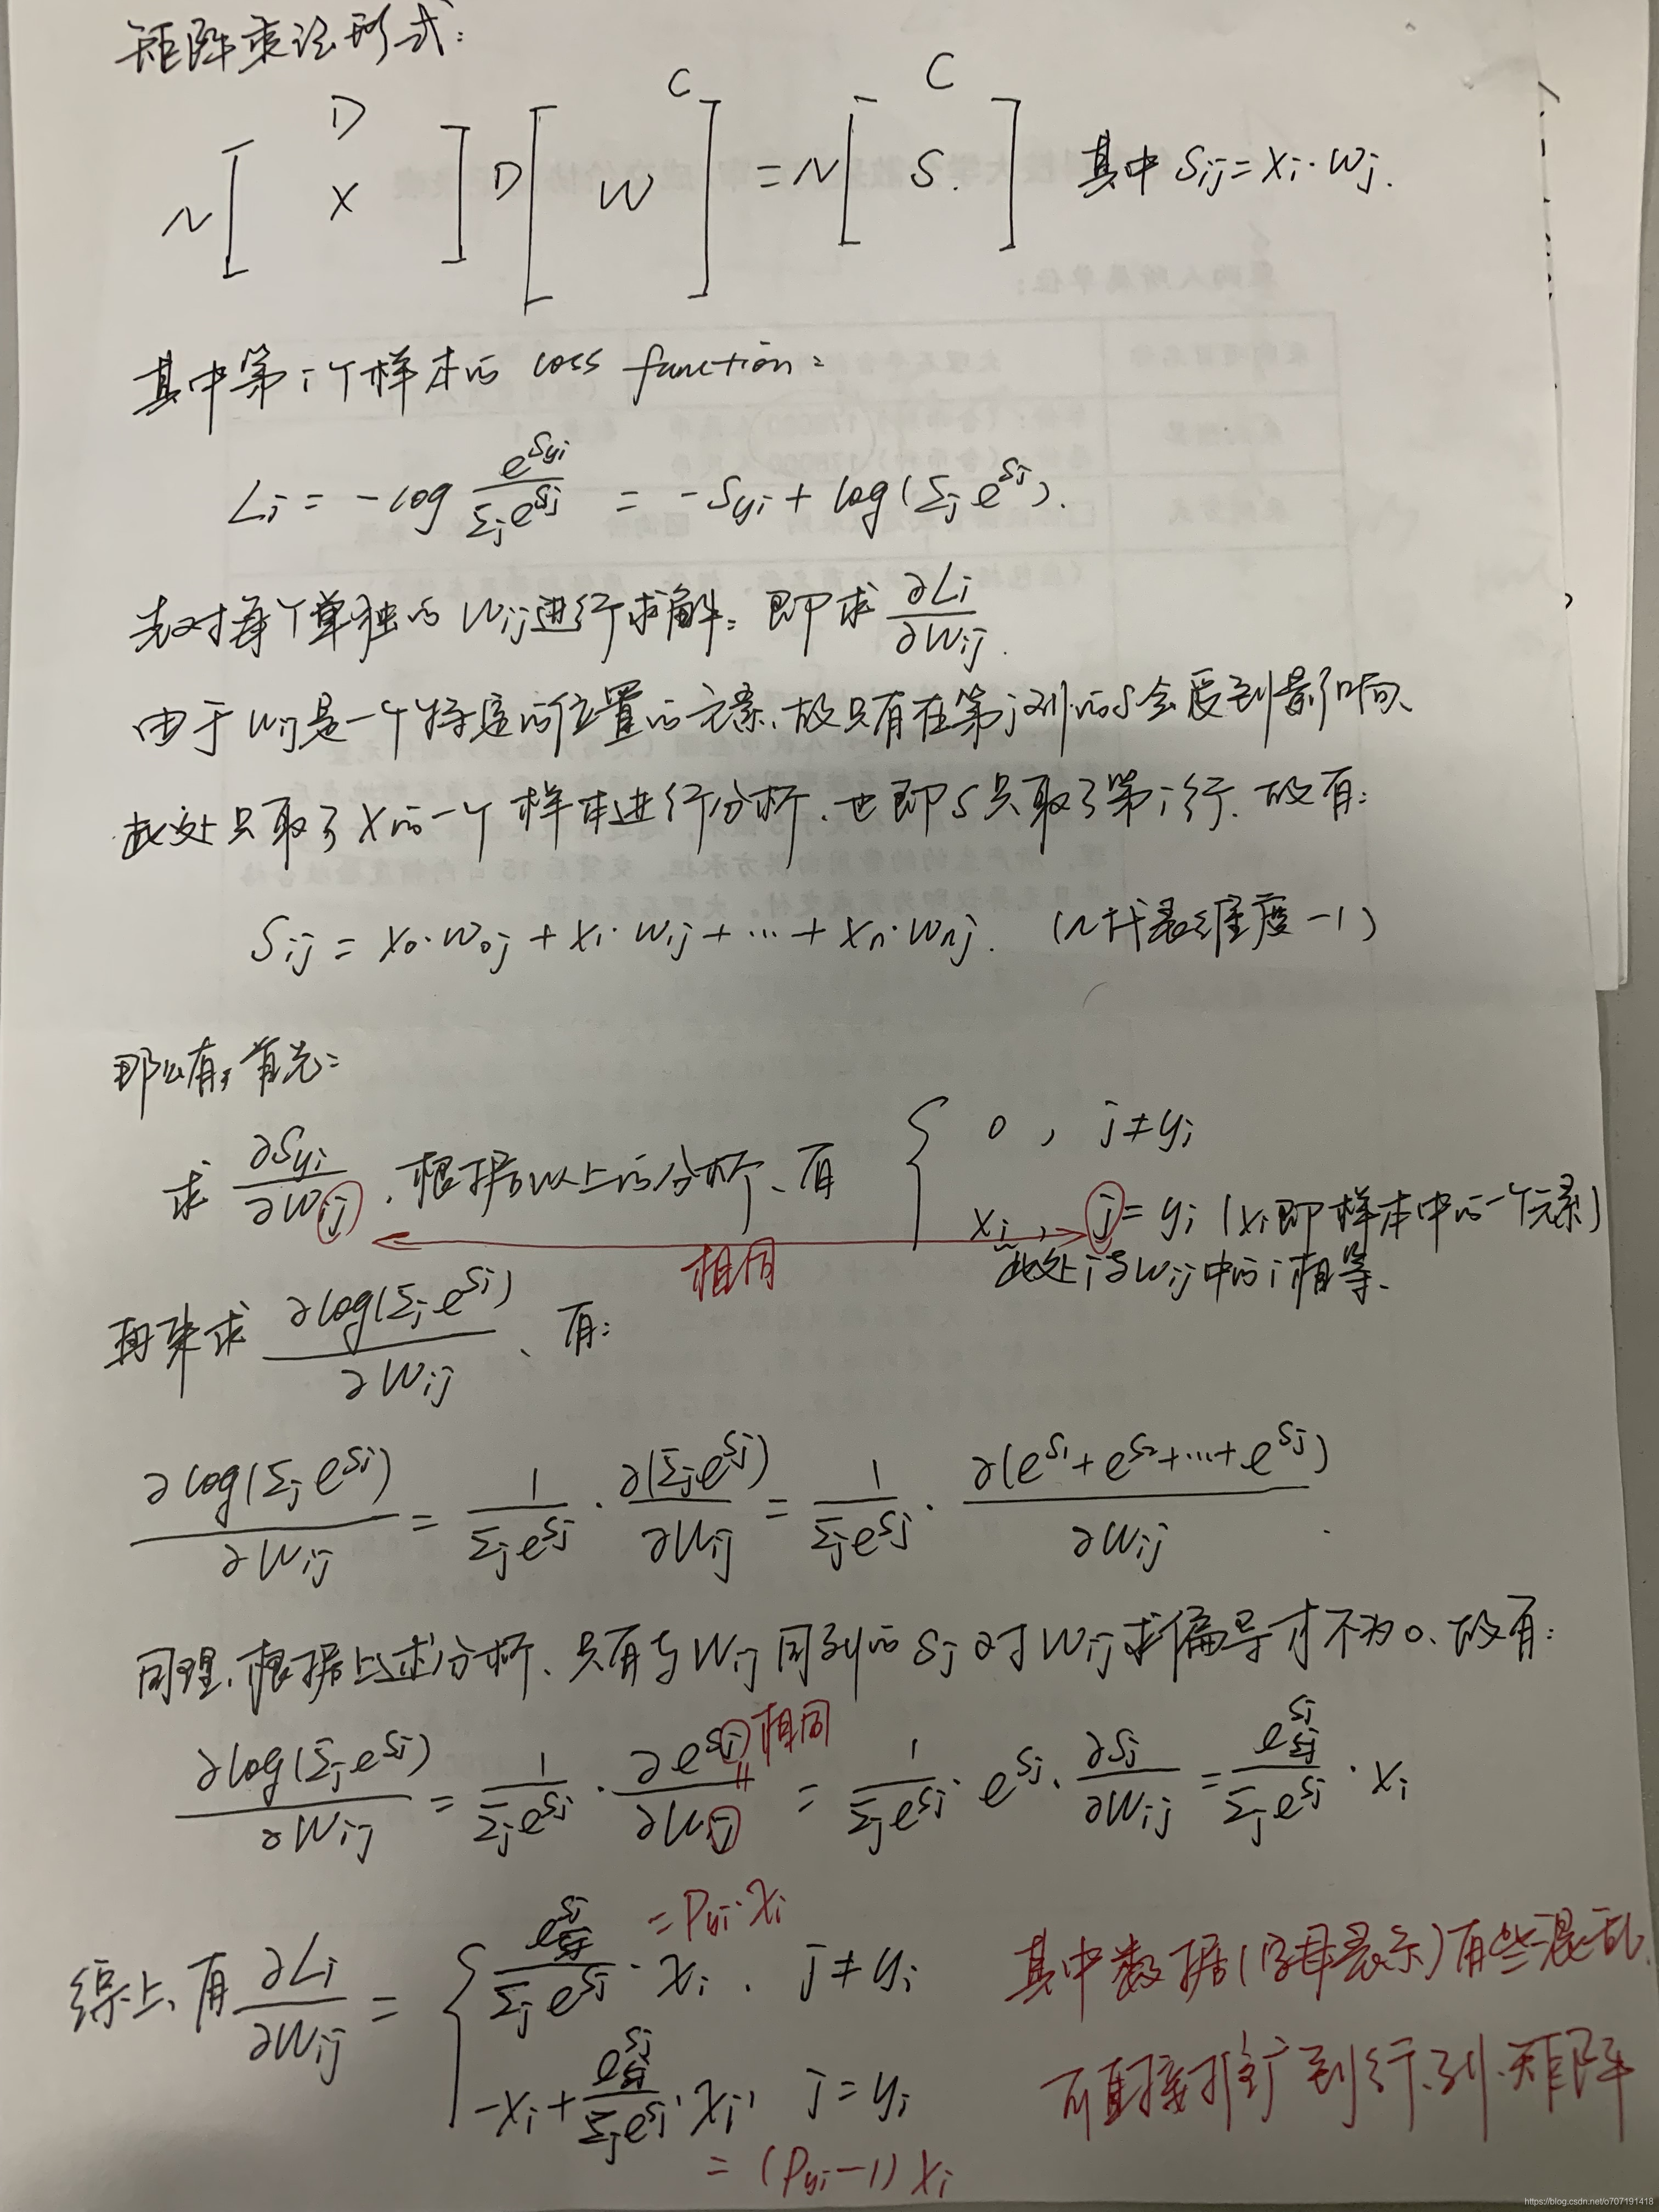 矩阵乘法形式:
N[ X ] D[ W ] = N[ S. ] 其中 Sij = Xi · Wj.
D C C
其中第i个样本的 loss function:
Li = -log e^{Syi} / Σj e^{Sj} = -Syi + log(Σj e^{Sj}).
先对每个单独的 Wij进行求解: 即求 ∂Li/∂Wij.
由于Wij是一个特定的位置的元素、故只有在第j列的S会受到影响、
此处只取了X的一个样本进行分析、也即S只取了第i行、故有:
Sij = X0·W0j + Xi·Wij + … + Xn·Wnj. (n代表维度-1)
那么有, 首先:
求 ∂Syi/∂Wij、根据以上的分析、有 { 0, j≠yi
Xi, j=yi (Xi即样本中的一个元素)
相同
此处i与Wij中的i相等、
再来求 ∂log(Σj e^{Sj})/∂Wij、有:
∂log(Σj e^{Sj})/∂Wij = 1/Σj e^{Sj} · ∂(Σj e^{Sj})/∂Wij = 1/Σj e^{Sj} · ∂(e^{S1}+e^{S2}+…+e^{Sj})/∂Wij
同理、根据上述分析、只有与Wij同列的Sj对Wij求偏导才不为0、故有:
∂log(Σj e^{Sj})/∂Wij = 1/Σj e^{Sj} · ∂e^{Sj}/∂Wij = 1/Σj e^{Sj} · e^{Sj} · ∂Sj/∂Wij = e^{Sj}/Σj e^{Sj} · Xi
相同
综上、有 ∂Li/∂Wij = { e^{Sj}/Σj e^{Sj} · Xi, j≠yi
= Pyi·Xi
-Xi + e^{Sj}/Σj e^{Sj} · Xi, j=yi
= (Pyi-1) Xi
其中数据(字母表示)有些混乱
可直接推广到行、列、矩阵
https://blog.csdn.net/o707191418